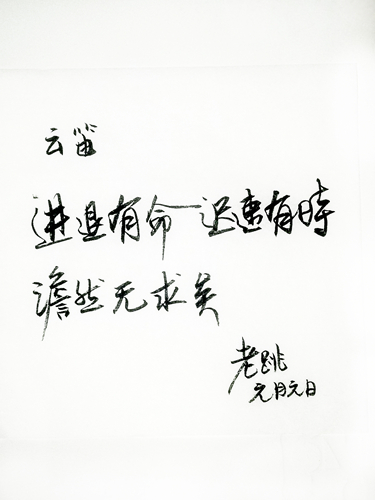 云笛
进退有命 迟速有时
澹然无求矣
老跳
元月元日